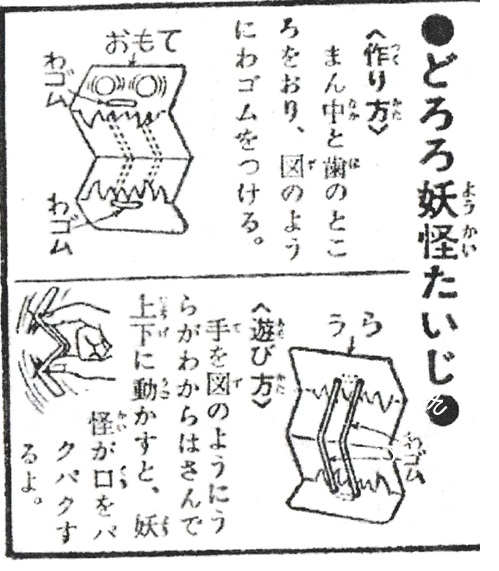 ●どろろ妖怪たいじ●
〈作り方〉
まん中と歯のとこ
ろをおり、図のよう
にわゴムをつける。
おもて
わゴム
わゴム
うら
わゴム
〈遊び方〉
手を図のようにう
らがわからはさんで
上下に動かすと、妖
怪が口をパ
クパクす
るよ。